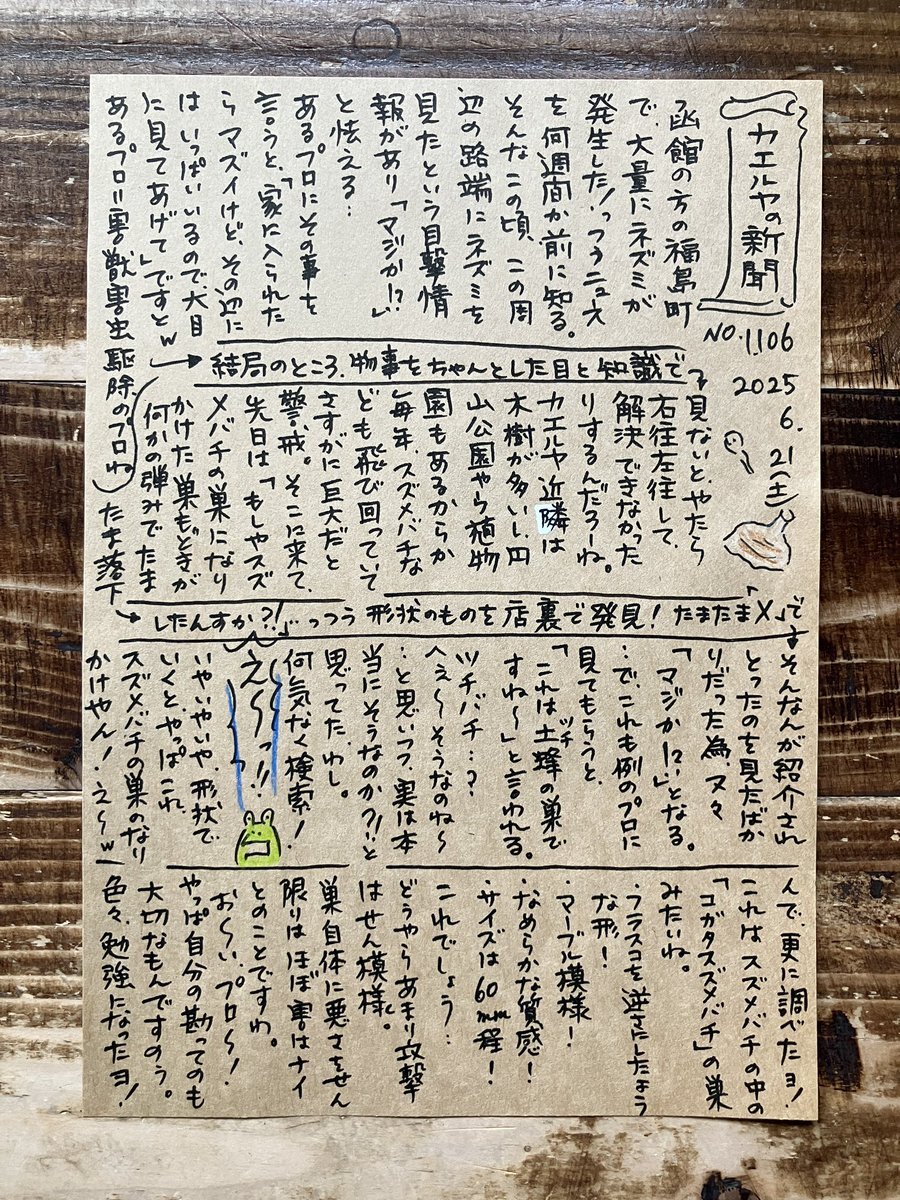 カエルヤの新聞
NO.1106
2025
6.21(土)
函館の方の福島町
で、大量にネズミが
発生した!っつうニュース
を何週間か前に知る。
そんなこの頃、この周
辺の路端にネズミを
見たという目撃情
報があり「マジか!?」
と怯える…
あるプロにその事を
言うと、「家に入られた
らマズイけど、その辺に
はいっぱいいるので、大目
に見てあげて」ですとw
あるプロ=害獣害虫駆除のプロね
結局のところ、物事をちゃんとした目と知識で
見ないと、やたら
右往左往して、
解決できなかった
りするんだろーね。
カエルヤ近隣は
木樹が多いし、円
山公園やら植物
園もあるからか
毎年、スズメバチな
ども飛び回っていて
さすがに巨大だと
警戒。そこに来て、
先日は「もしやスズ
メバチの巣になり
かけた巣もどきが
何かの弾みでたま
たま落下
したんすか?!」…っつう形状のものを店裏で発見!たまたま「X」で
そんなんが紹介され
とったのを見たばか
りだった為、又々
「マジか!?」となる。
…で、これも例のプロに
見てもらうと、
「これは土蜂の巣で
ツチ
すね〜」と言われる。
ツチバチ…?
へぇ〜そうなのね〜
…と思いつつ、実は本
当にそうなのか?!と
思ってた、わし。
何気なく検索!
え〜っ!!
いやいやいや、形状で
いくと、やっぱこれ
スズメバチの巣のなり
かけやん!え〜w
んで、更に調べたヨ!
これはスズメバチの中の
「コガタスズメバチ」の巣
みたいね。
・フラスコを逆さにしたよう
な形!
・マーブル模様!
・なめらかな質感!
・サイズは60mm程!
これでしょう…
どうやらあまり攻撃
はせん模様。
巣自体に悪さをせん
限りはほぼ害はナイ
とのことですわ。
お〜い、プロ〜!
やっぱ自分の勘ってのも
大切なもんですのう。
色々、勉強になったヨ!